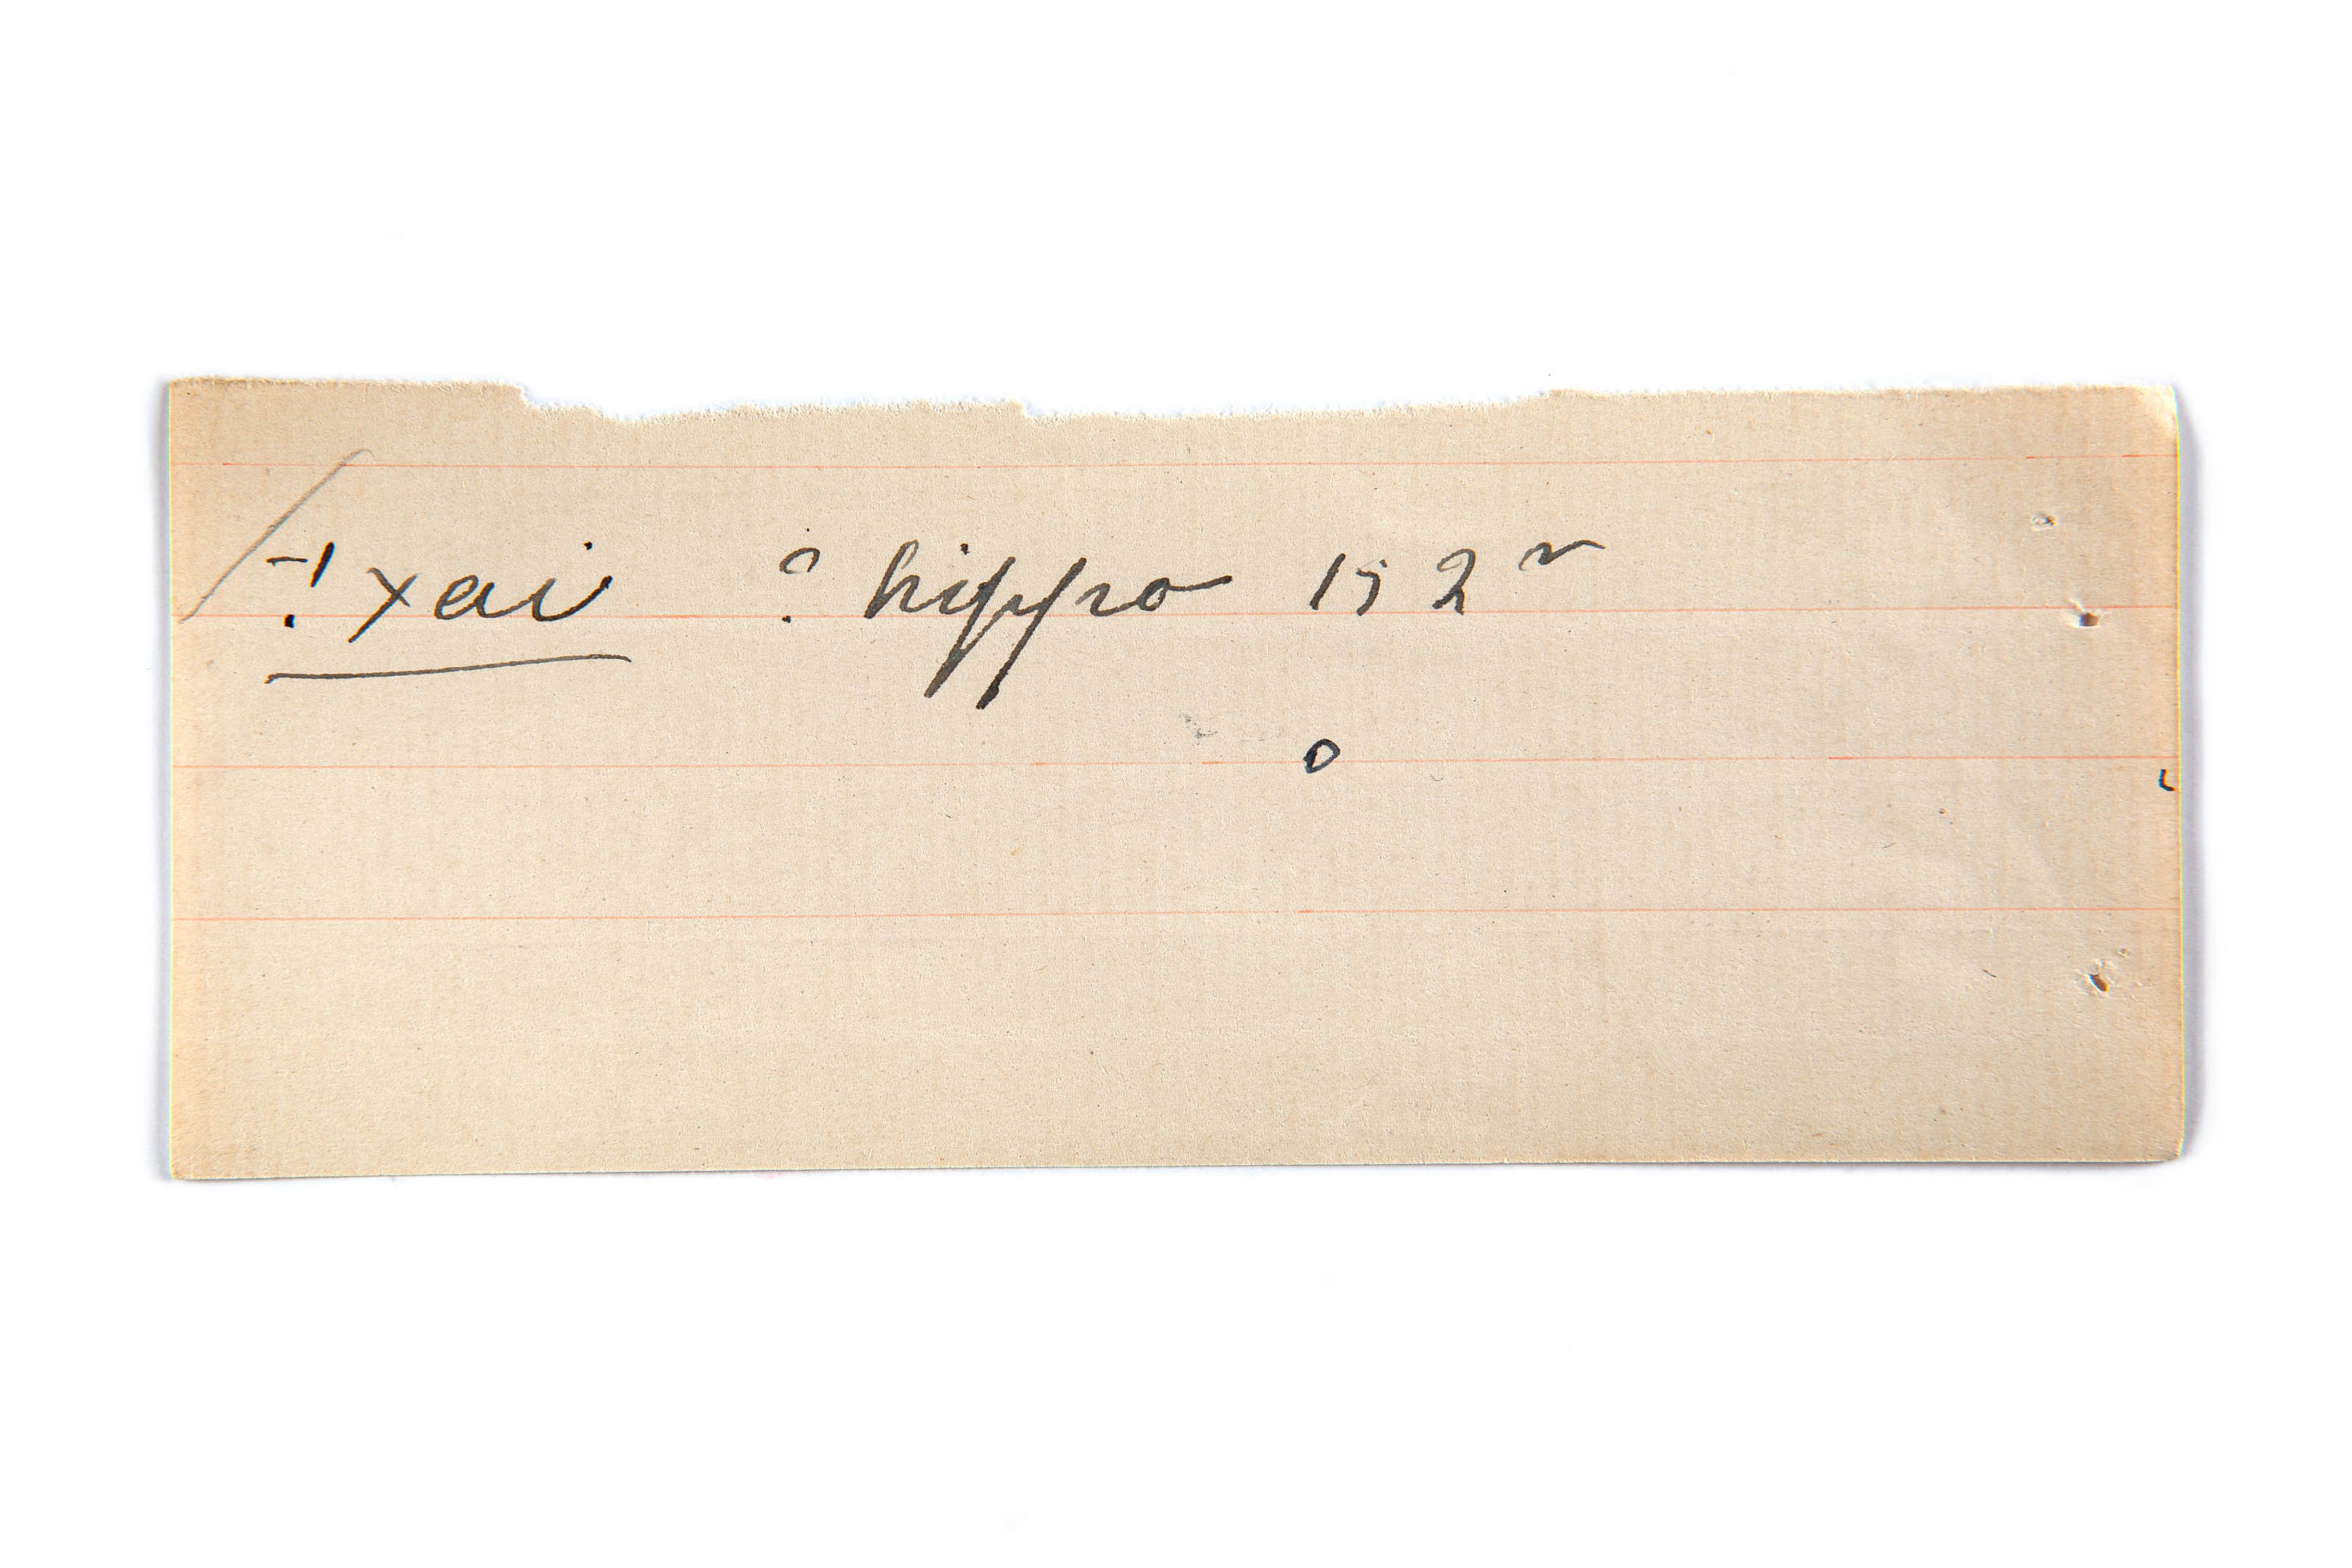 -!xai ? hippo 152 r
o